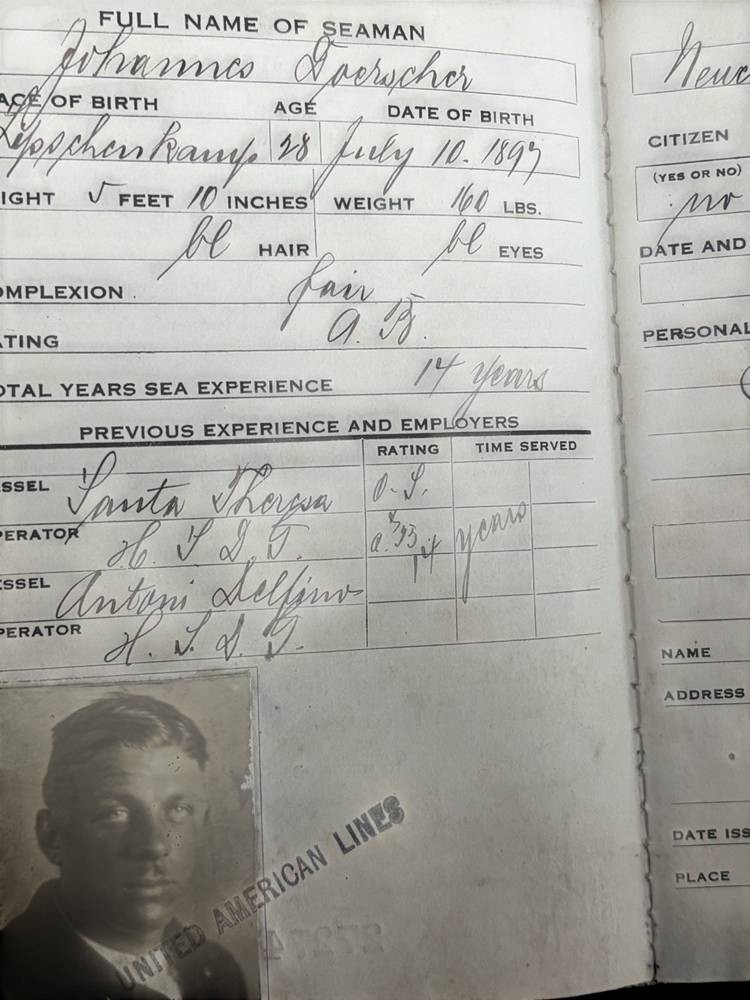 FULL NAME OF SEAMAN
Johannes Doerscher
ACE OF BIRTH AGE DATE OF BIRTH
28 July 10. 1897
IGHT 5 FEET 10 INCHES WEIGHT 160 LBS.
bl HAIR bl EYES
OMPLEXION fair
ATING A. B.
OTAL YEARS SEA EXPERIENCE 14 years
PREVIOUS EXPERIENCE AND EMPLOYERS
RATING TIME SERVED
ESSEL Santa Theresa O. S.
PERATOR H. S. D. G. a. B. 14 years
ESSEL Antoni Delfino
PERATOR H. S. D. G.
UNITED AMERICAN LINES
CITIZEN
(YES OR NO)
no
DATE AND
PERSONAL
NAME
ADDRESS
DATE ISS
PLACE